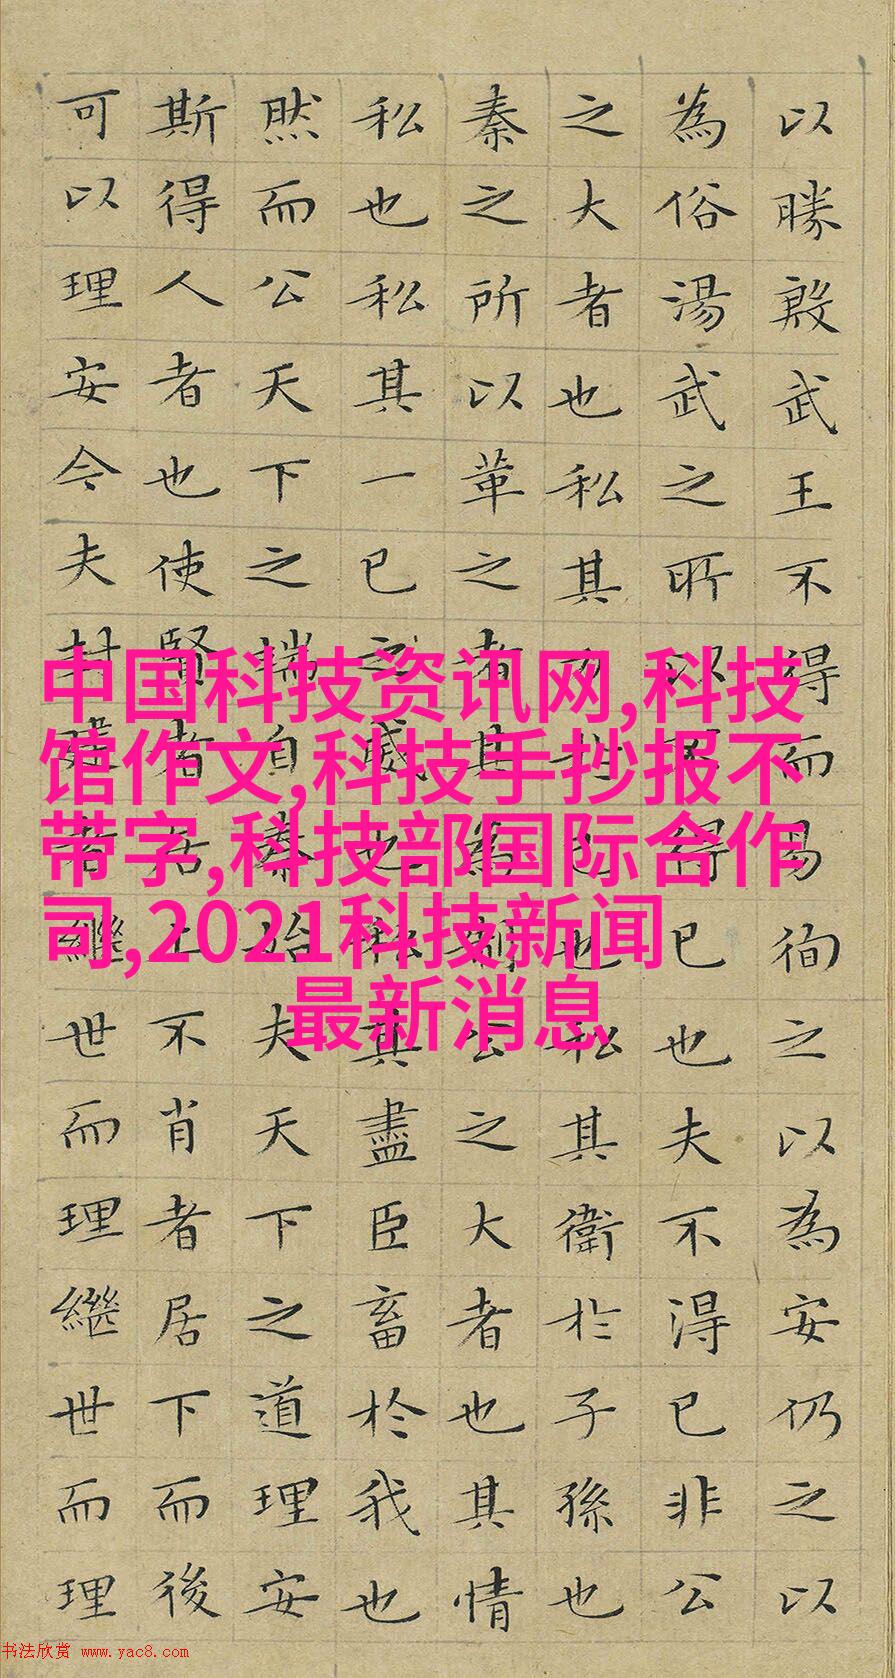 以勝殷武王不得而易徇之以為安仍之以
為俗湯武之所以不得已也夫不得已非公
之大者也私其力於已也私其衛於子孫也
秦之所以革之者其為制公之大者也其情
私也私其一已之威也私其盡臣畜於我也
然而公天下之端自秦始夫天下之道理安
斯得人者也使賢者居上不肖者居下而後
可以理安今夫封建者繼世而理繼世而理
中国科技资讯网,科技
馆作文,科技手抄报不
带字,科技部国际合作
司,2021科技新闻
最新消息
书法欣赏 www.yac8.com